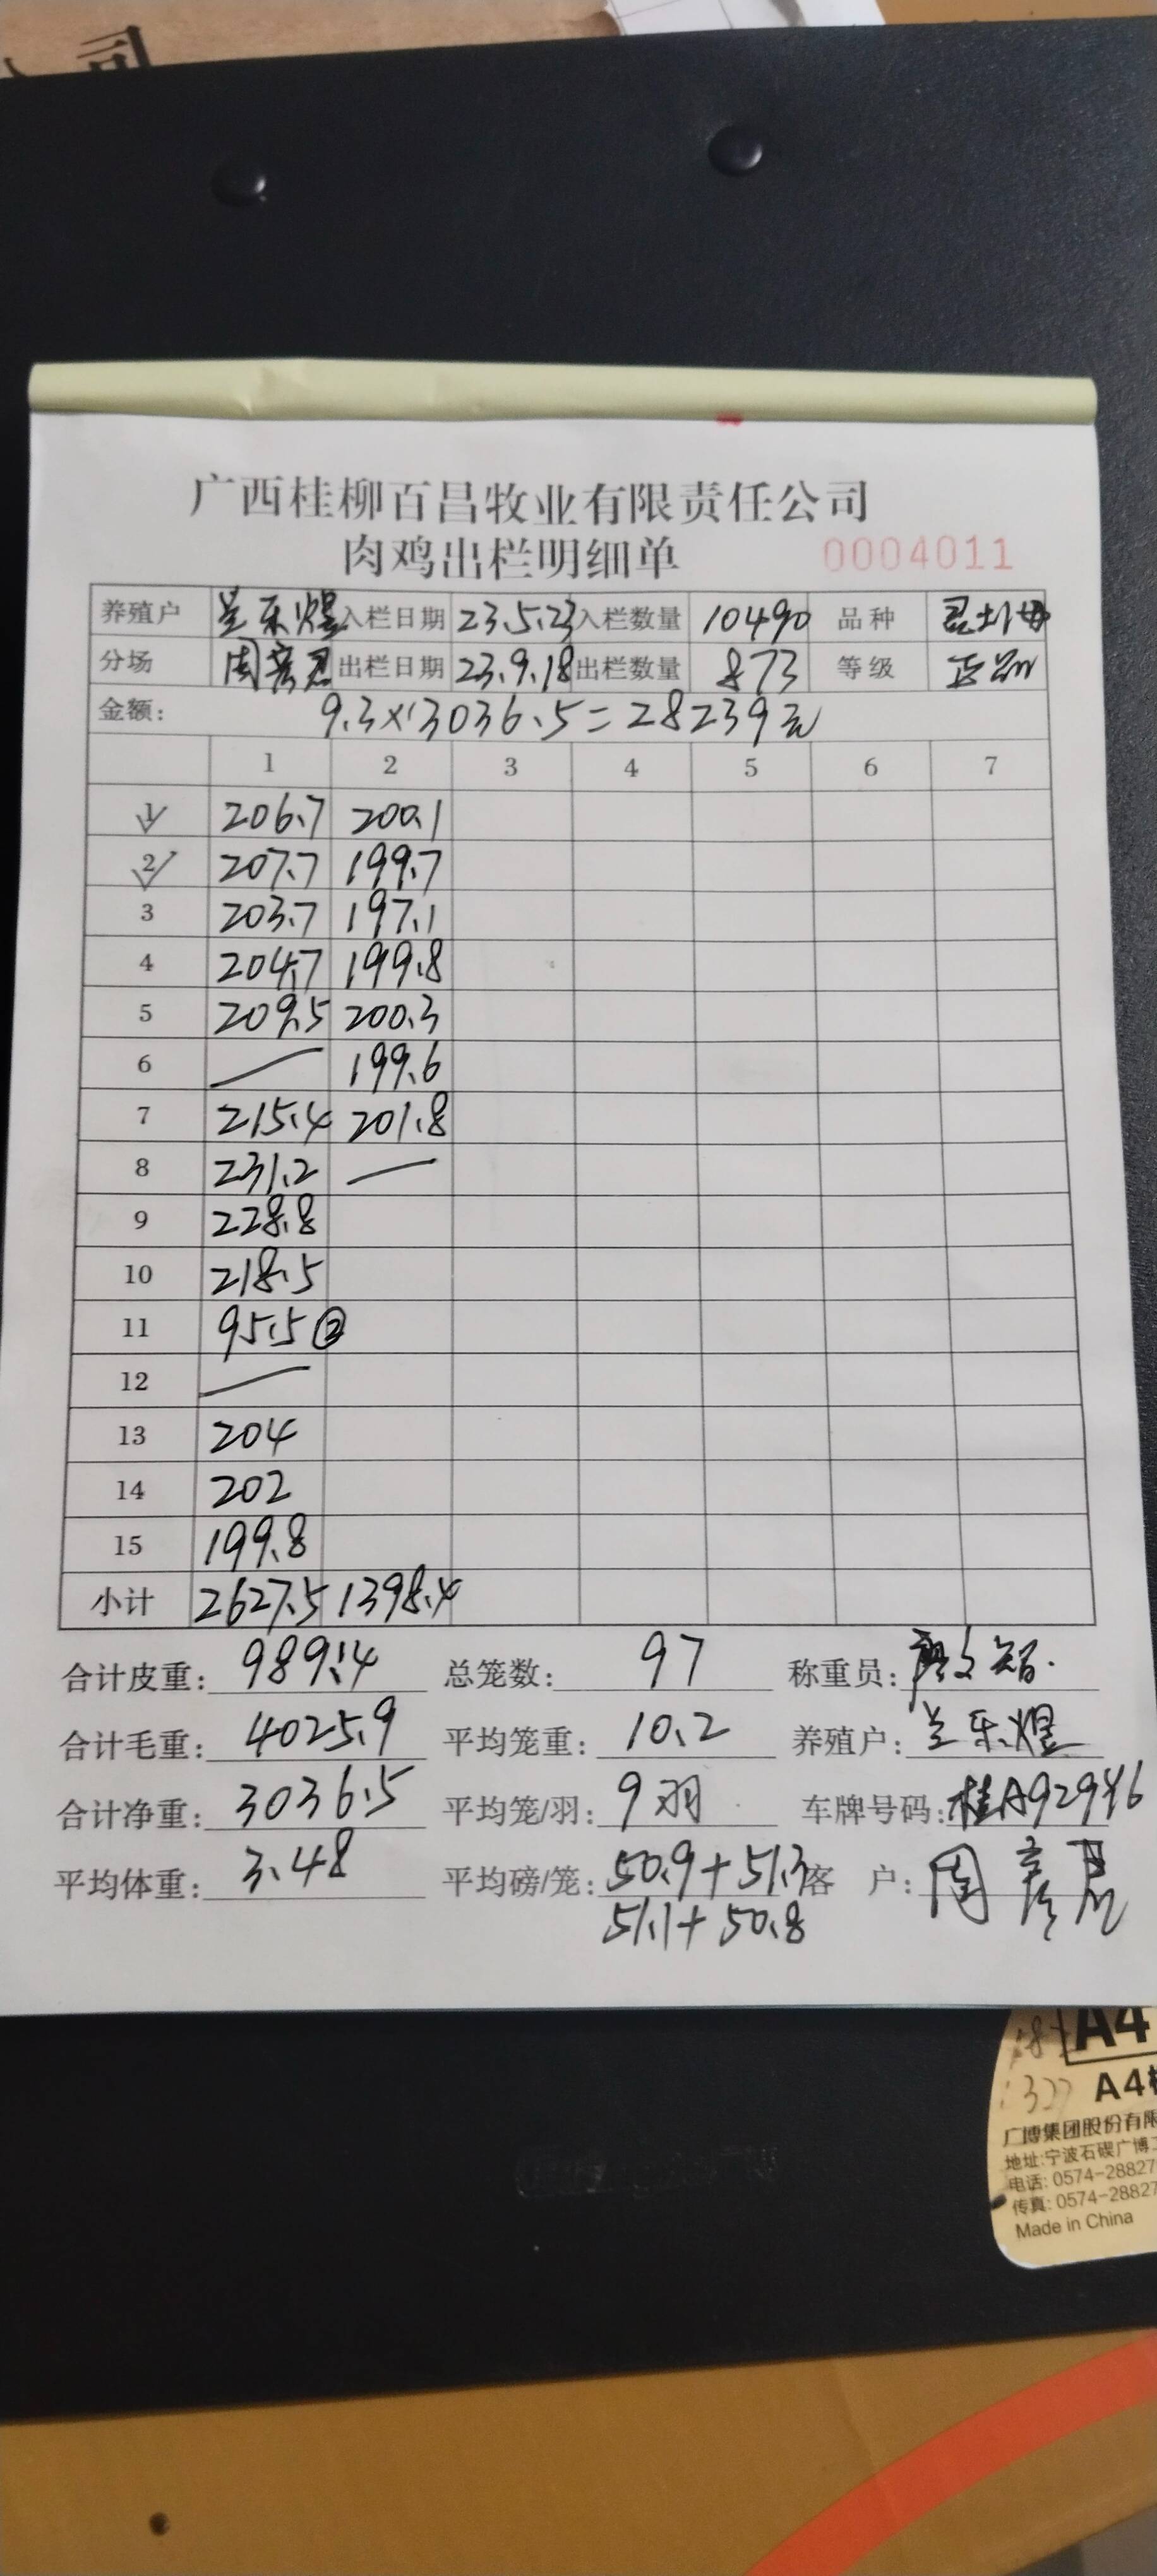 广西桂柳百昌牧业有限责任公司
肉鸡出栏明细单 0004011
养殖户 兰乐煜 入栏日期 23.5.23 入栏数量 10490 品种
分场 出栏日期 23.9.18 出栏数量 873 等级 正品
金额: 9.3×3036.5=28239元
1 2 3 4 5 6 7
1 206.7 200.1
2 207.7 199.7
3 203.7 197.1
4 204.7 199.8
5 209.5 200.3
6 — 199.6
7 215.4 201.8
8 231.2 —
9 228.8
10 218.5
11 95.5 ②
12 —
13 204
14 202
15 199.8
小计 2627.5 1398.4
合计皮重: 989.4 总笼数: 97 称重员:
合计毛重: 4025.9 平均笼重: 10.2 养殖户: 兰乐煜
合计净重: 3036.5 平均笼/羽: 9羽 车牌号码: 桂A92946
平均体重: 3.48 平均磅/笼: 50.9+51.3 客 户: 周
51.1+50.8
A4
A4
广博集团股份有限
地址:宁波石碶广博工
电话: 0574-28827
传真: 0574-28827
Made in China